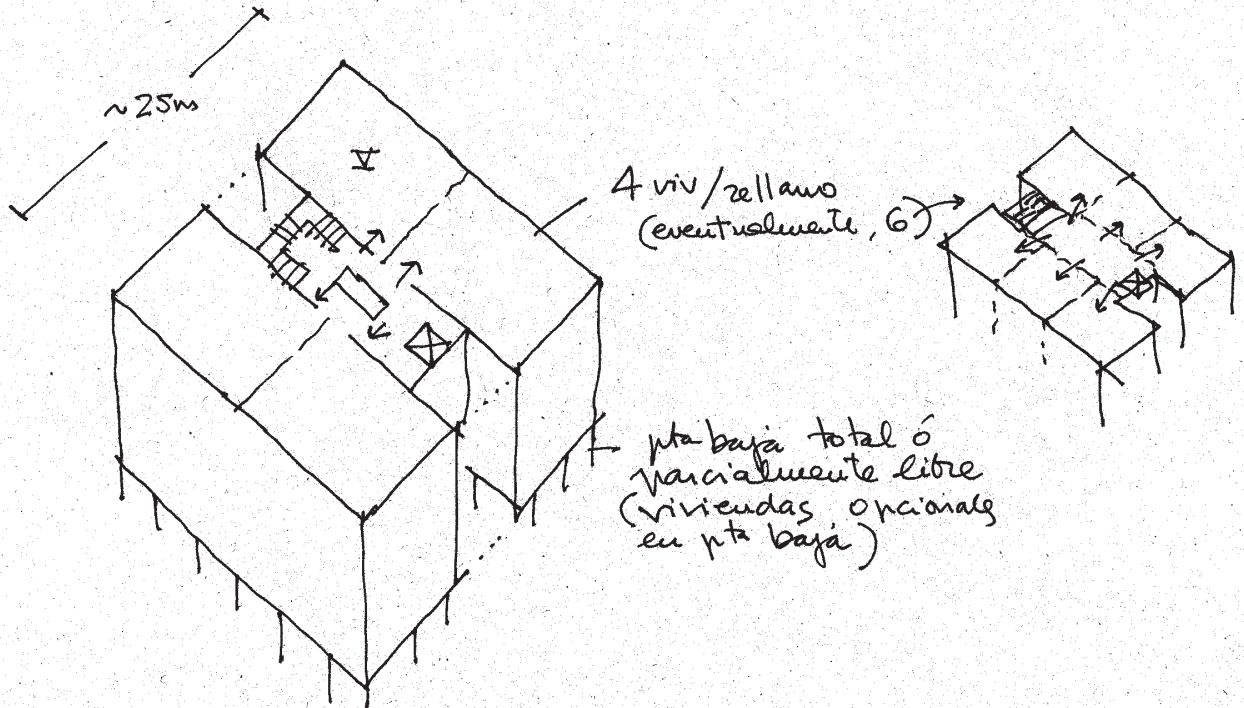 ~25m
V
4 viv/rellano
(eventualmente, 6)
pta baja total ó
parcialmente libre
(viviendas opcionales
en pta baja)